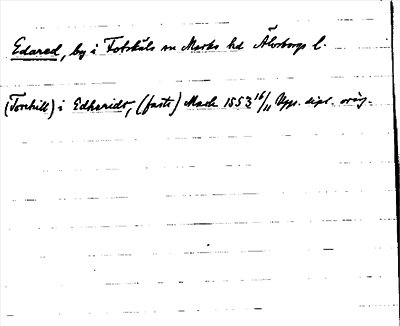 Edared, by i Fotskäls sn Marks hd Älvsborgs l.
(Torchill) i Edheridt, (faste) Mark 1553 16/11 Upps. dipl. orig.